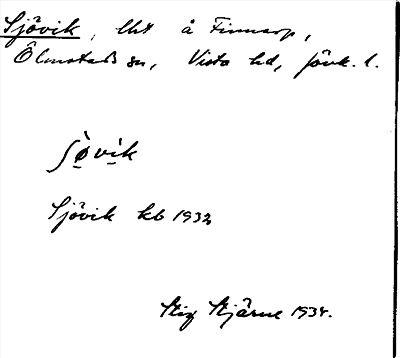 Sjövik, lht å Finnarp,
Ölmstads sn, Vista hd, Jönk. l.
ʃø̀vìk
Sjövik kb 1932
Stig Stjärne 1934.